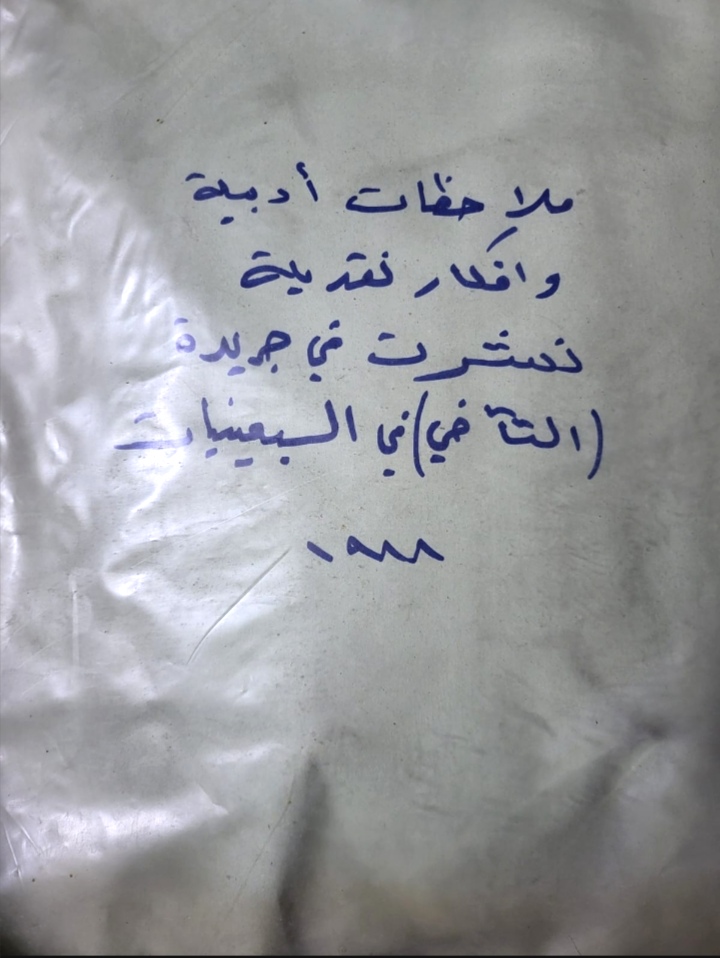 ملاحظات أدبية
وافكار نقدية
نشرت في جريدة
(التآخي) في السبعينيات
١٩٨٨